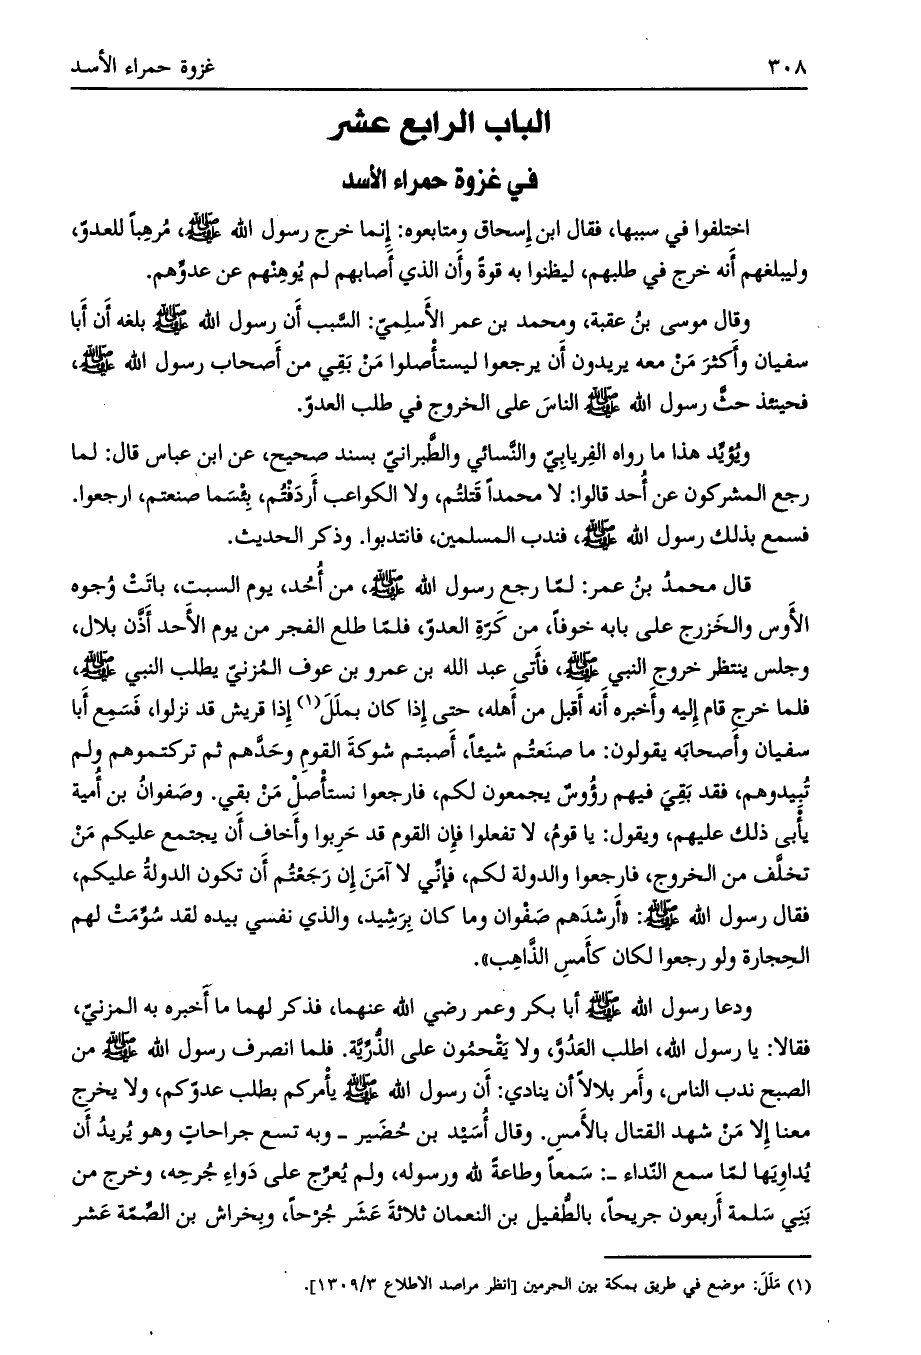 ٣٠٨
غزوة حمراء الأسد
الباب الرابع عشر
في غزوة حمراء الأسد
اختلفوا في سببها، فقال ابن إسحاق ومتابعوه: إنما خرج رسول الله ﷺ، مُرهِباً للعدوّ،
وليبلغهم أَنه خرج في طلبهم، ليظنوا به قوةً وأن الذي أَصابهم لم يُوهِنْهم عن عدوِّهم.
وقال موسى بنُ عقبة، ومحمد بن عمر الأَسلِميّ: السَّبب أن رسول الله ﷺ بلغه أَن أَبا
سفيان وأَكثرَ مَنْ معه يريدون أَن يرجعوا ليستأْصلوا مَنْ بَقِي من أَصحاب رسول الله ﷺ،
فحينئذ حثَّ رسول الله ﷺ الناسَ على الخروج في طلب العدوّ.
ويُؤيِّد هذا ما رواه الفِريابِيّ والنَّسائي والطَّبرانيّ بسند صحيح، عن ابن عباس قال: لما
رجع المشركون عن أُحد قالوا: لا محمداً قَتلتُم، ولا الكواعب أَردَفْتُم، بِئْسَما صنعتم، ارجعوا.
فسمع بذلك رسول الله ﷺ، فندب المسلمين، فانتدبوا. وذكر الحديث.
قال محمدُ بنُ عمر: لمّا رجع رسول الله ﷺ، من أُحُد، يوم السبت، باتَتْ وُجوه
الأَوس والخَزرج على بابه خوفاً، من كَرَّةِ العدوّ، فلمّا طلع الفجر من يوم الأَحد أَذَّن بلال،
وجلس ينتظر خروج النبي ﷺ، فأَتى عبد الله بن عمرو بن عوف المُزنيّ يطلب النبي ﷺ،
فلما خرج قام إليه وأَخبره أَنه أَقبل من أَهله، حتى إذا كان بملَلَ(١) إذا قريش قد نزلوا، فَسَمِع أَبا
سفيان وأَصحابَه يقولون: ما صنَعتُم شيئاً، أَصبتم شوكةَ القومِ وحَدَّهم ثم تركتموهم ولم
تُبِيدوهم، فقد بَقِيَ فيهم رؤُوسٌ يجمعون لكم، فارجعوا نستأْصِلْ مَنْ بقي. وصَفوانُ بن أُمية
يأْبى ذلك عليهم، ويقول: يا قومُ، لا تفعلوا فإن القوم قد حَرِبوا وأَخاف أَن يجتمع عليكم مَنْ
تخلَّف من الخروج، فارجعوا والدولة لكم، فإنِّي لا آمَنَ إن رَجَعْتُم أَن تكون الدولةُ عليكم،
فقال رسول الله ﷺ: «أَرشدَهم صَفْوان وما كان بِرَشِيد، والذي نفسي بيده لقد سُوِّمَتْ لهم
الحِجارة ولو رجعوا لكان كأَمسِ الذَّاهِب».
ودعا رسول الله ﷺ أَبا بكر وعمر رضي الله عنهما، فذكر لهما ما أَخبره به المزنيّ،
فقالا: يا رسول الله، اطلب العَدُوَّ، ولا يَقْحمُون على الذُّرِّيَّة. فلما انصرف رسول الله ﷺ من
الصبح ندب الناس، وأَمر بلالاً أَن ينادي: أَن رسول الله ﷺ يأْمركم بطلب عدوّكم، ولا يخرج
معنا إلا مَنْ شهد القتال بالأَمس. وقال أُسَيْد بن حُضَير ـ وبه تسع جراحاتٍ وهو يُريدُ أَن
يُداوِيَها لمّا سمع النّداء ـ: سَمعاً وطاعةً لله ورسوله، ولم يُعرِّج على دَواءِ جُرحِه، وخرج من
بَنِي سَلمة أَربعون جريحاً، بالطُّفيل بن النعمان ثلاثةَ عَشَر جُرْحاً، وبِخراش بن الصِّمّة عَشر
(١) مَلَلَ: موضع في طريق بمكة بين الحرمين [انظر مراصد الاطلاع ١٣٠٩/٣].